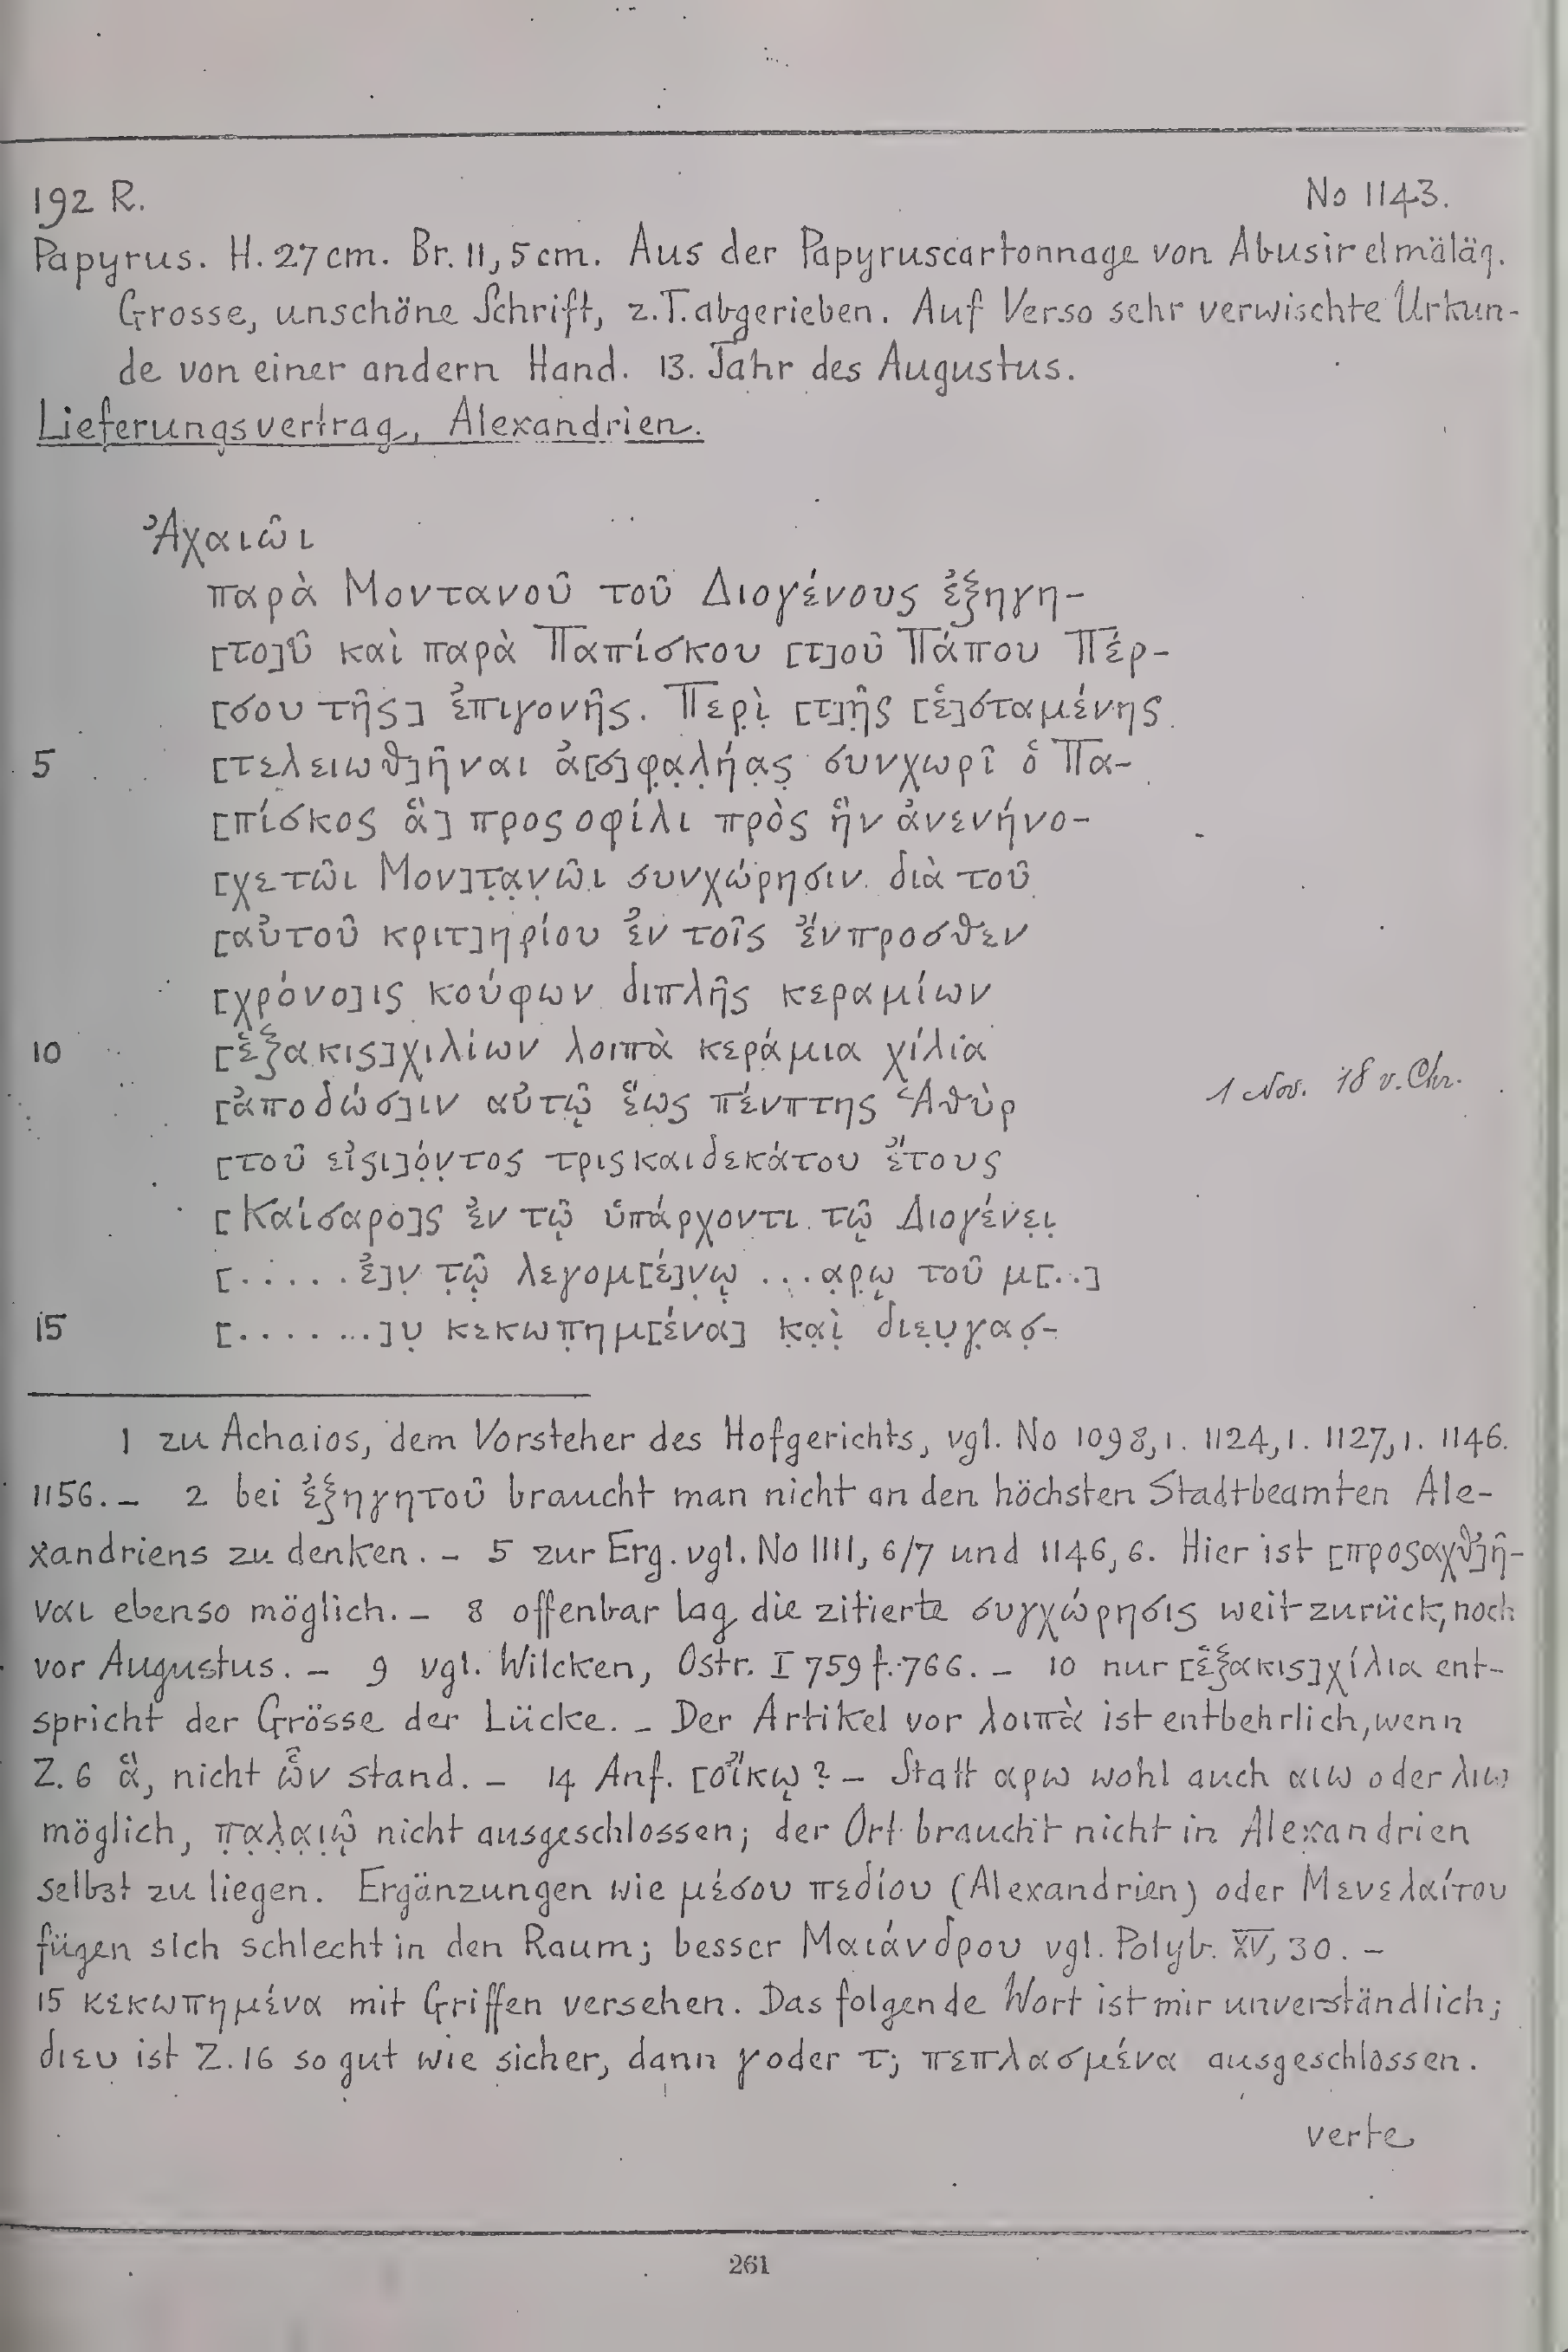 192 R. No 1143.
Papyrus. H. 27 cm. Br. 11,5 cm. Aus der Papyruscartonnage von Abusir elmäläq.
Grosse, unschöne Schrift, z.T. abgerieben. Auf Verso sehr verwischte Urkun-
de von einer andern Hand. 13. Jahr des Augustus.
Lieferungsvertrag, Alexandrien.
Ἀχαιῶι
παρὰ Μοντανοῦ τοῦ Διογένους ἐξηγη-
[το]ῦ καὶ παρὰ Παπίσκου [τ]οῦ Πάπου Πέρ-
[σου τῆς] ἐπιγονῆς. Περ̣ὶ̣ [τ]ῆ̣ς [ἑ]σταμένης
5 [τελειωθ]ῆναι ἀ[σ]φ̣α̣λ̣ή̣α̣ς̣ συνχωρῖ ὁ Πα-
[πίσκος ἃ] προσοφίλι πρὸς ἣν ἀνενήνο-
[χε τῶι Μον]τ̣α̣ν̣ῶ̣ι συνχώρησιν διὰ τοῦ
[αὐτοῦ κριτ]ηρίου ἐν τοῖς ἔνπροσθεν
[χρόνο]ις κούφων διπλῆς κεραμίων
10 [ἑξακις]χιλίων λοιπὰ κεράμια χίλια
[ἀποδώσ]ιν αὐτῷ ἕως πένπτης Ἁθὺρ 1 Nov. 18 v. Chr.
[τοῦ εἰσι]ό̣ν̣τος τρισκαιδεκάτου ἔτους
[Καίσαρο]ς ἐν τῷ ὑπάρχοντι τῷ Διογένε̣ι̣
[. . . . . ἐ]ν̣ τ̣ῷ̣ λεγομ[έ]ν̣ῳ̣ . . . α̣ρ̣ῳ̣ τοῦ μ[. .]
15 [. . . . . . .]υ̣ κεκωπ̣ημ[ένα] κ̣α̣ὶ̣ διε̣υ̣γ̣ασ̣-
1 zu Achaios, dem Vorsteher des Hofgerichts, vgl. No 1098,1. 1124,1. 1127,1. 1146.
1156. – 2 bei ἐξηγητοῦ braucht man nicht an den höchsten Stadtbeamten Ale-
xandriens zu denken. – 5 zur Erg. vgl. No 1111, 6/7 und 1146, 6. Hier ist [προσαχθ]ῆ-
ναι ebenso möglich. – 8 offenbar lag die zitierte συγχώρησις weit zurück, noch
vor Augustus. – 9 vgl. Wilcken, Ostr. I 759 f. 766. – 10 nur [ἑξακις]χίλια ent-
spricht der Grösse der Lücke. – Der Artikel vor λοιπὰ ist entbehrlich, wenn
Z. 6 ἃ, nicht ὧν stand. – 14 Anf. [οἴκῳ? – Statt αρω wohl auch αιω oder λιω
möglich, π̣α̣λ̣α̣ι̣ῷ̣ nicht ausgeschlossen; der Ort braucht nicht in Alexandrien
selbst zu liegen. Ergänzungen wie μέσου πεδίου (Alexandrien) oder Μενελαίτου
fügen sich schlecht in den Raum; besser Μαιάνδρου vgl. Polyb. XV, 30. –
15 κεκωπημένα mit Griffen versehen. Das folgende Wort ist mir unverständlich;
διευ ist Z. 16 so gut wie sicher, dann γ oder τ; πεπλασμένα ausgeschlossen.
verte
261